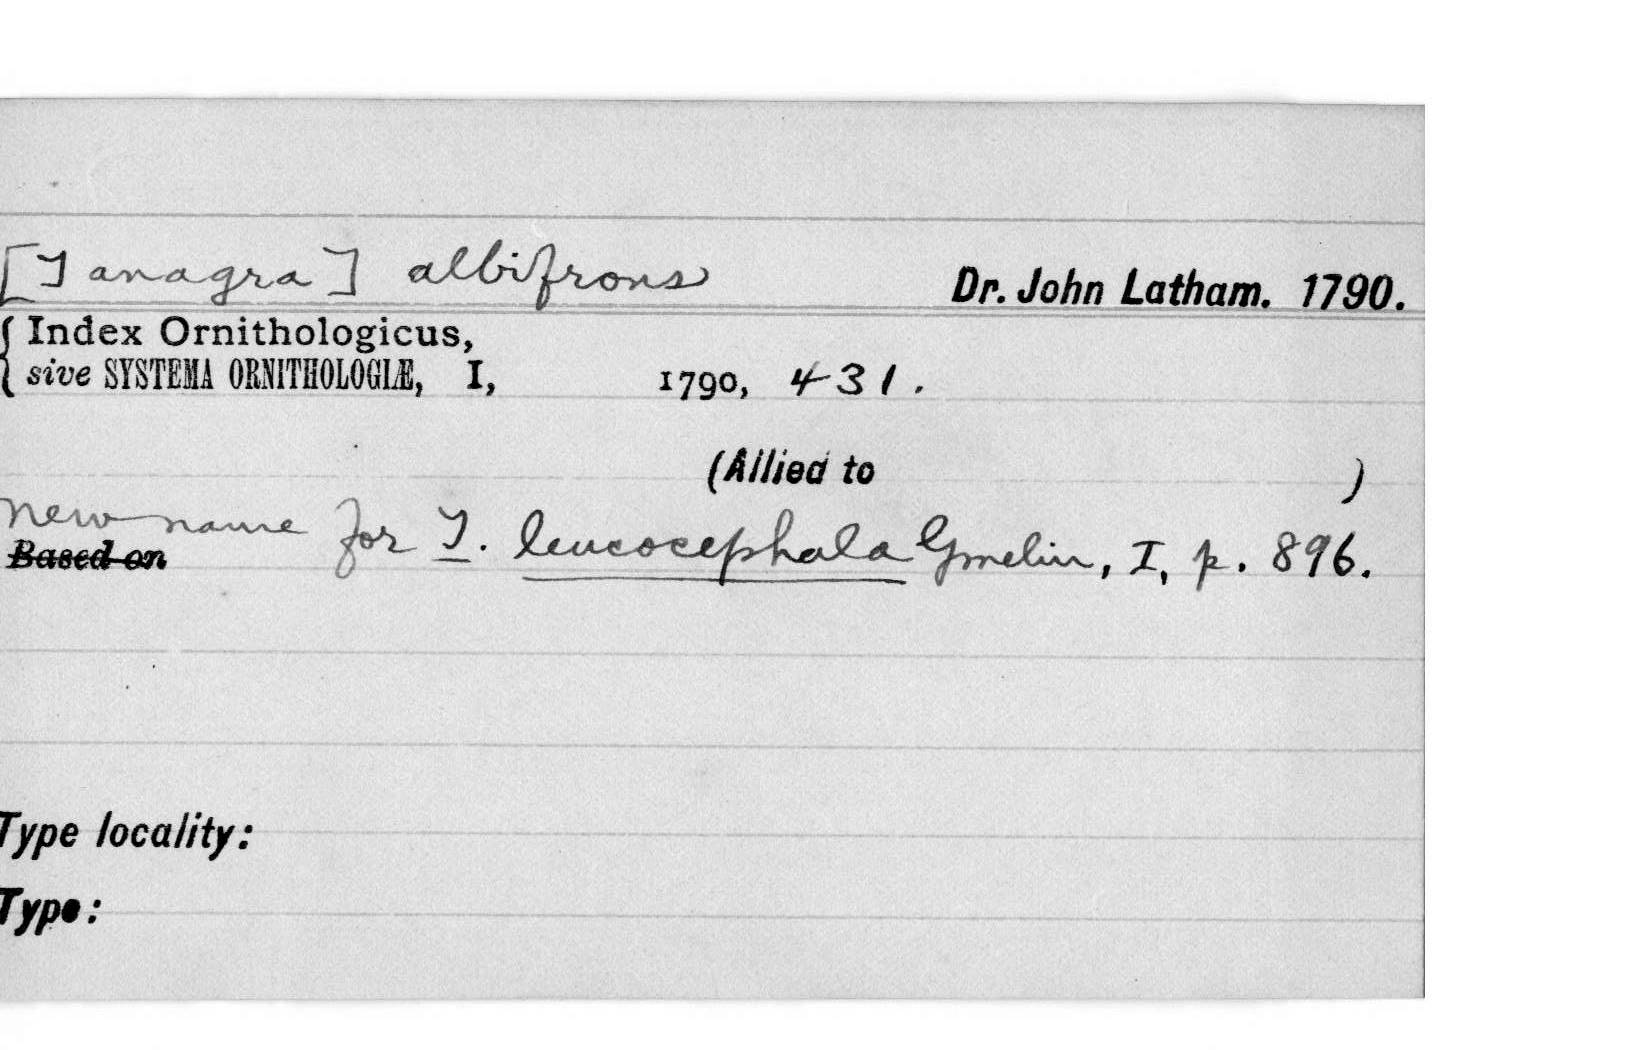 [Tanagra] albifrons Dr. John Latham. 1790.
Index Ornithologicus,
sive SYSTEMA ORNITHOLOGIÆ, I, 1790, 431.
(Allied to )
new name for T. leucocephala Gmelin, I, p. 896.
Based on
Type locality:
Type: